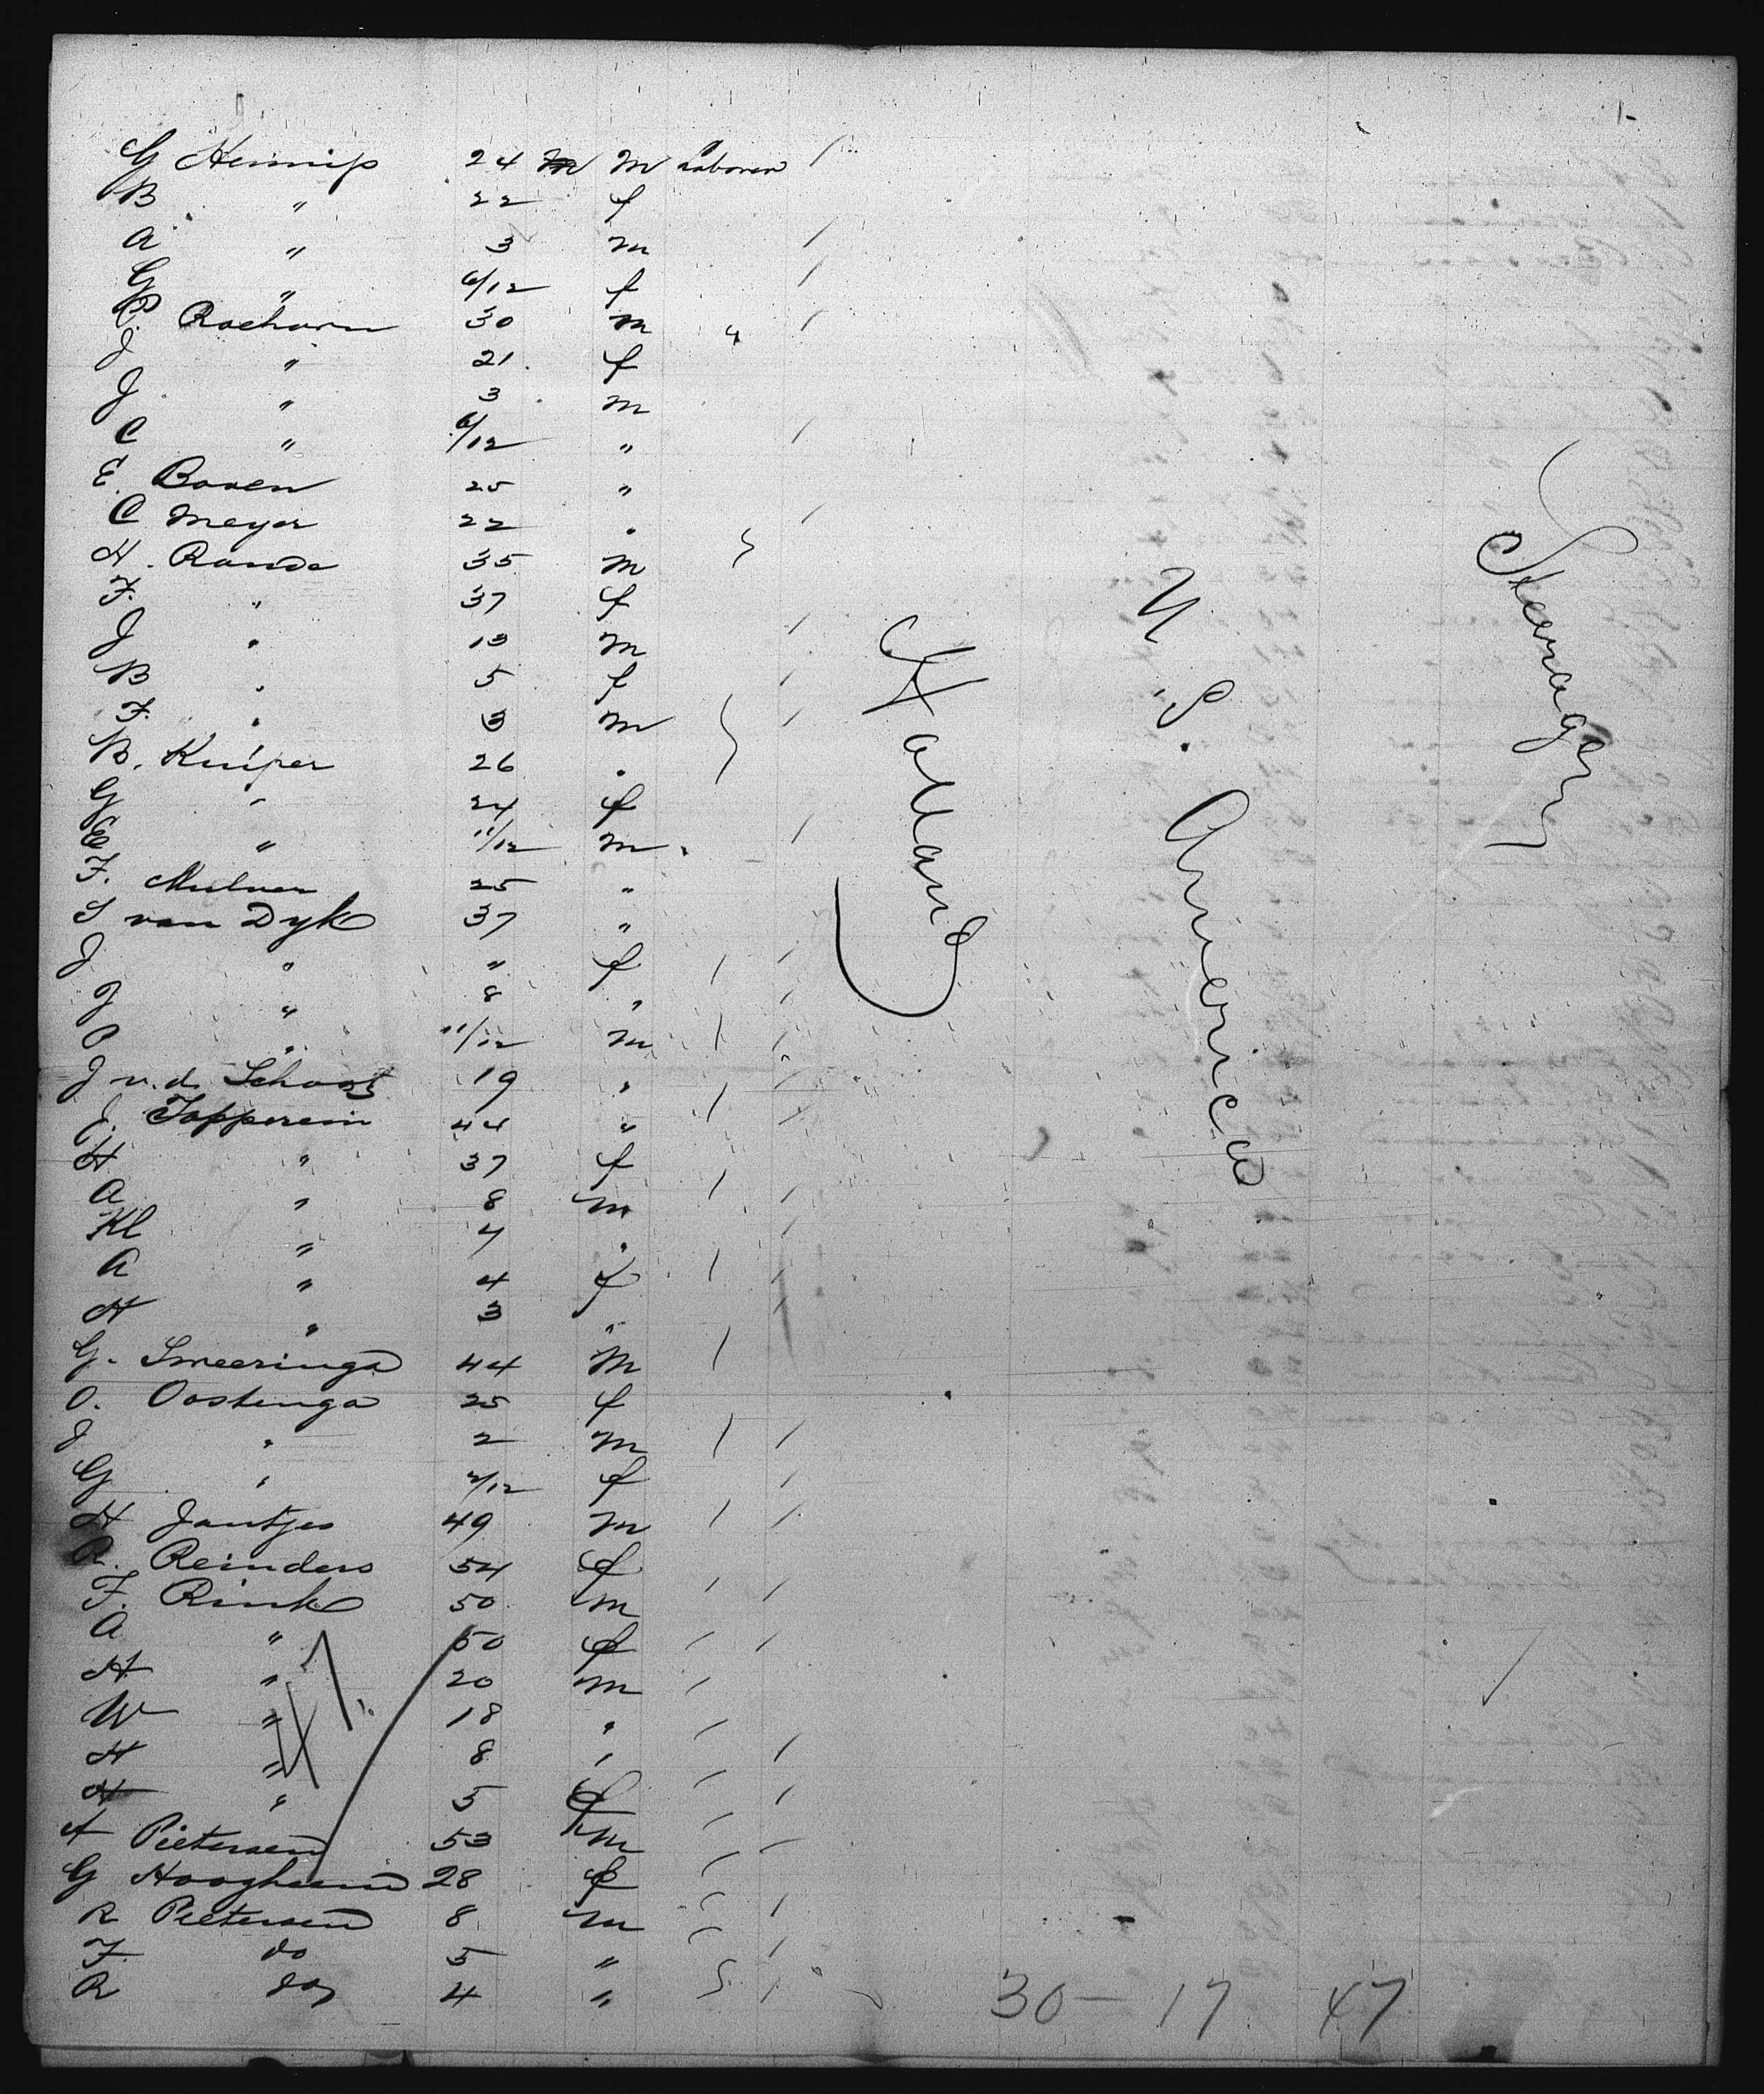 G Hennip 24 m M Laborer
B " 22 f
A " 3 m
G " 6/12 f
P. Rochorn 30 m "
J " 21 f
J " 3 m
C " 6/12 "
E. Boven 25 "
C Meyer 22 "
H. Ronda 35 m
F. " 37 f
J " 13 m
B " 5 f
F. " 3 m
B. Kuiper 26 "
G " 24 f
E " 11/12 m
F. Mulner 25 "
S van Dyk 37 "
J " " f
J " 8 "
P " 11/12 m
J v.d. Schoot 19 "
J. Topperein 44 "
H " 37 f
A " 8 m
Kl " 7 "
A " 4 f
H " 3 "
G. Smeeringa 44 m
O. Oostenga 25 f
J " 2 m
G " f
H Jantjes 49 m
R. Reinders 54 f
F. Rink 50 m
A " 50 f
H " 20 m
W " 18 "
H " 8 "
H " 5 f
A Pietersen 53 m
G 28 f
R Pietersen 8 m
F. do 5 "
R do 4 "
Holland
U.S. America
Steerage
47
30 — 17 47